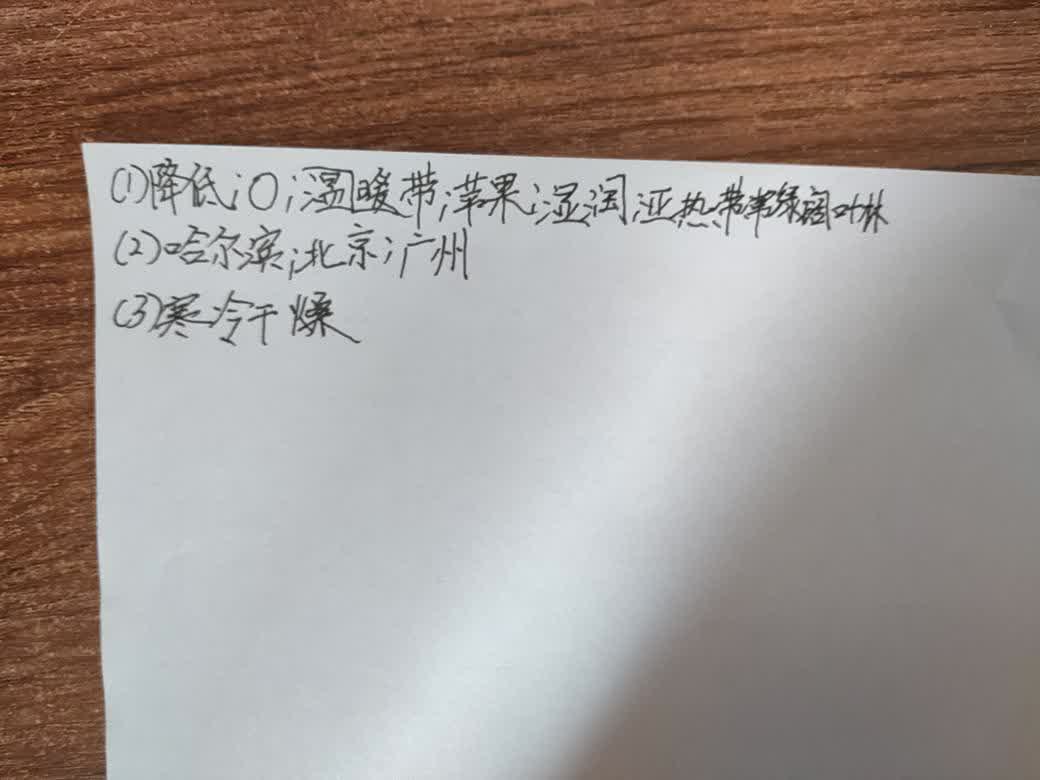 (1)降低;0;温暖带;苹果;湿润;亚热带常绿阔叶林
(2)哈尔滨;北京;广州
(3)寒冷干燥